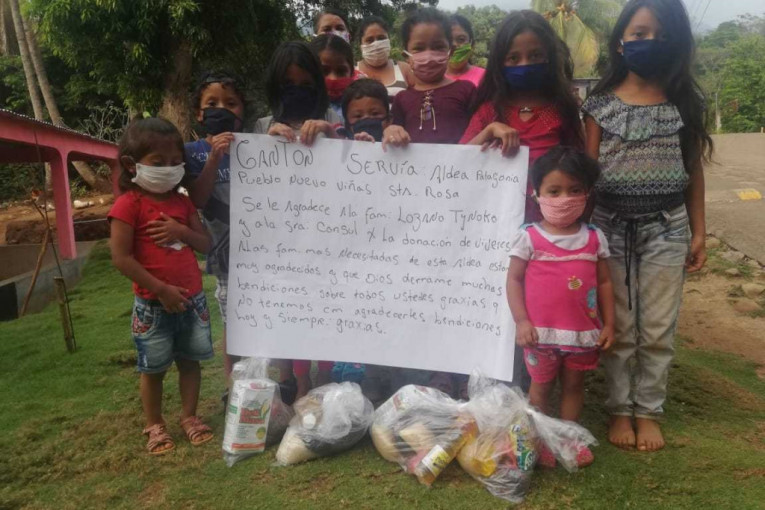 CANTON SERVIA Aldea Patagonia
Pueblo Nuevo Viñas Sta. Rosa
Se le Agradece Ala fam: Lozano Tynoko
y a la Sra. Consul x La donacion de víveres
Alas fam. mas Necesitadas de esta Aldea estan
muy agradecidos y que Dios derrame muchas
bendiciones sobre todos ustedes graxias q
No tenemos cm agradecerles bendiciones
hoy y siempre: graxias.